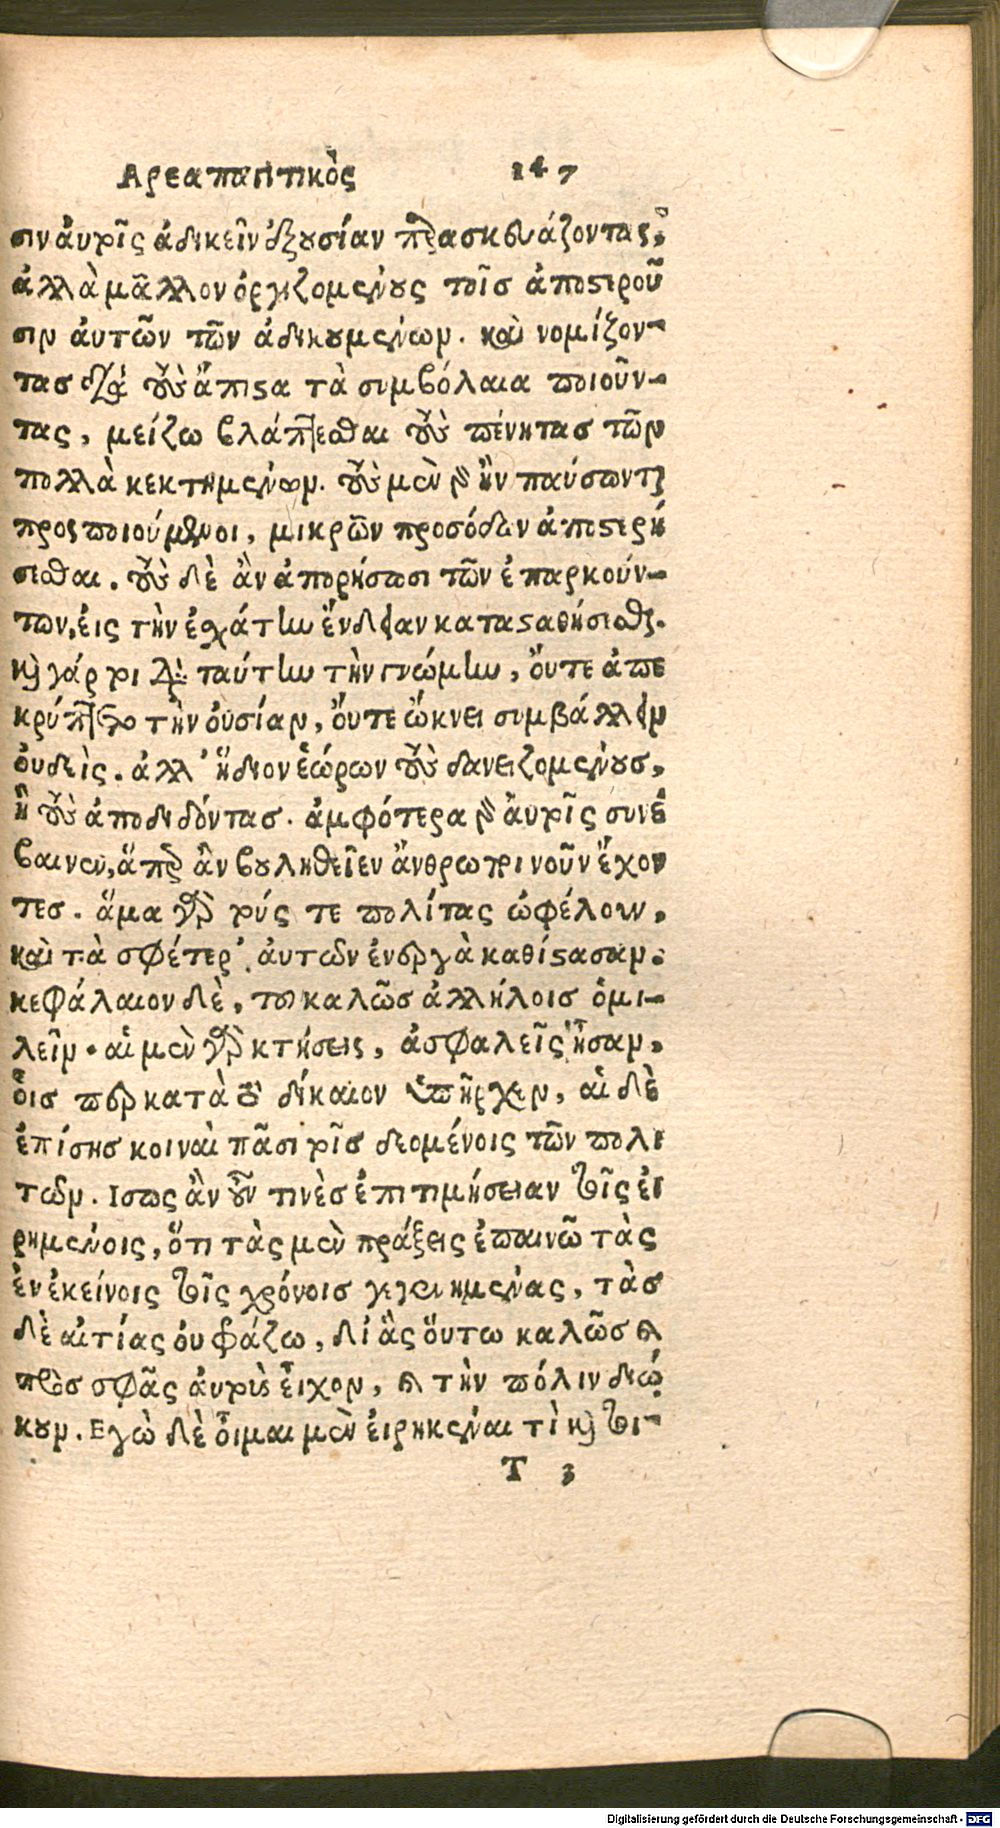 Αρεοπαγιτικὸς 147
σιν ἀυτοῖς ἀδικεῖν ἐξουσίαν παρασκευάζοντας,
ἀλλὰ μᾶλλον ὀργιζομένους τοῖσ ἀποστεροῦ
σιν ἀυτῶν τῶν ἀδικουμένων. καὶ νομίζον-
τασ διὰ τοὺς ἄπιστα τὰ συμβόλαια ποιοῦν-
τας, μείζω βλάπτεσθαι τοὺς πένητασ τῶν
πολλὰ κεκτημένων. τοὺς μὲν γὰρ ἢν παύσωντι
προςποιούμενοι, μικρῶν προσόδων ἀποστερή
σεσθαι. τοὺς δὲ ἂν ἀπορήσωσι τῶν ἐπαρκούν-
των, ἐις τὴν ἐσχάτην ἔνδειαν κατασταθήσεσθαι.
καὶ γάρ τοι διὰ ταύτην τὴν γνώμην, ὄυτε ἀπε
κρύπτετο τὴν ὀυσίαν, ὄυτε ὤκνει συμβάλλειν
ὀυδεὶς. ἀλλ' ἥδιον ἑώρων τοὺς δανειζομένουσ,
ἢ τοὺς ἀποδιδόντασ. ἀμφότερα γὰρ ἀυτοῖς συνέ
βαινεν, ἅπερ ἂν βουληθεῖεν ἄνθρωποι νοῦν ἔχον
τεσ. ἅμα γὰρ τούς τε πολίτας ὠφέλουν,
καὶ τὰ σφέτερ' ἀυτῶν ἐνεργὰ καθίστασαν.
κεφάλαιον δὲ, του καλῶσ ἀλλήλοισ ὁμι-
λεῖν. αἱ μὲν γὰρ κτήσεις, ἀσφαλεῖς ἦσαν,
οἷσ περ κατὰ τὸ δίκαιον ὑπῆρχεν, αἱ δὲ
ἐπίσησ κοιναὶ πᾶσι τοῖσ δεομένοις τῶν πολι
τῶν. Ισως ἂν οὖν τινὲσ ἐπιτιμήσειαν τοῖς ἐι
ρημένοις, ὅτι τὰς μὲν πράξεις ἐπαινῶ τὰς
ἐν ἐκείνοις τοῖς χρόνοισ γεγενημένας, τὰσ
δὲ αἰτίας ὀυ φράζω, δι' ἃς ὅυτω καλῶσ καὶ
πρὸσ σφᾶς ἀυτοὺς εἶχον, καὶ τὴν πόλιν διῴ
κουν. Εγὼ δὲ οἶμαι μὲν ἐιρηκέναι τὶ καὶ τοι-
T 3
Digitalisierung gefördert durch die Deutsche Forschungsgemeinschaft - DFG